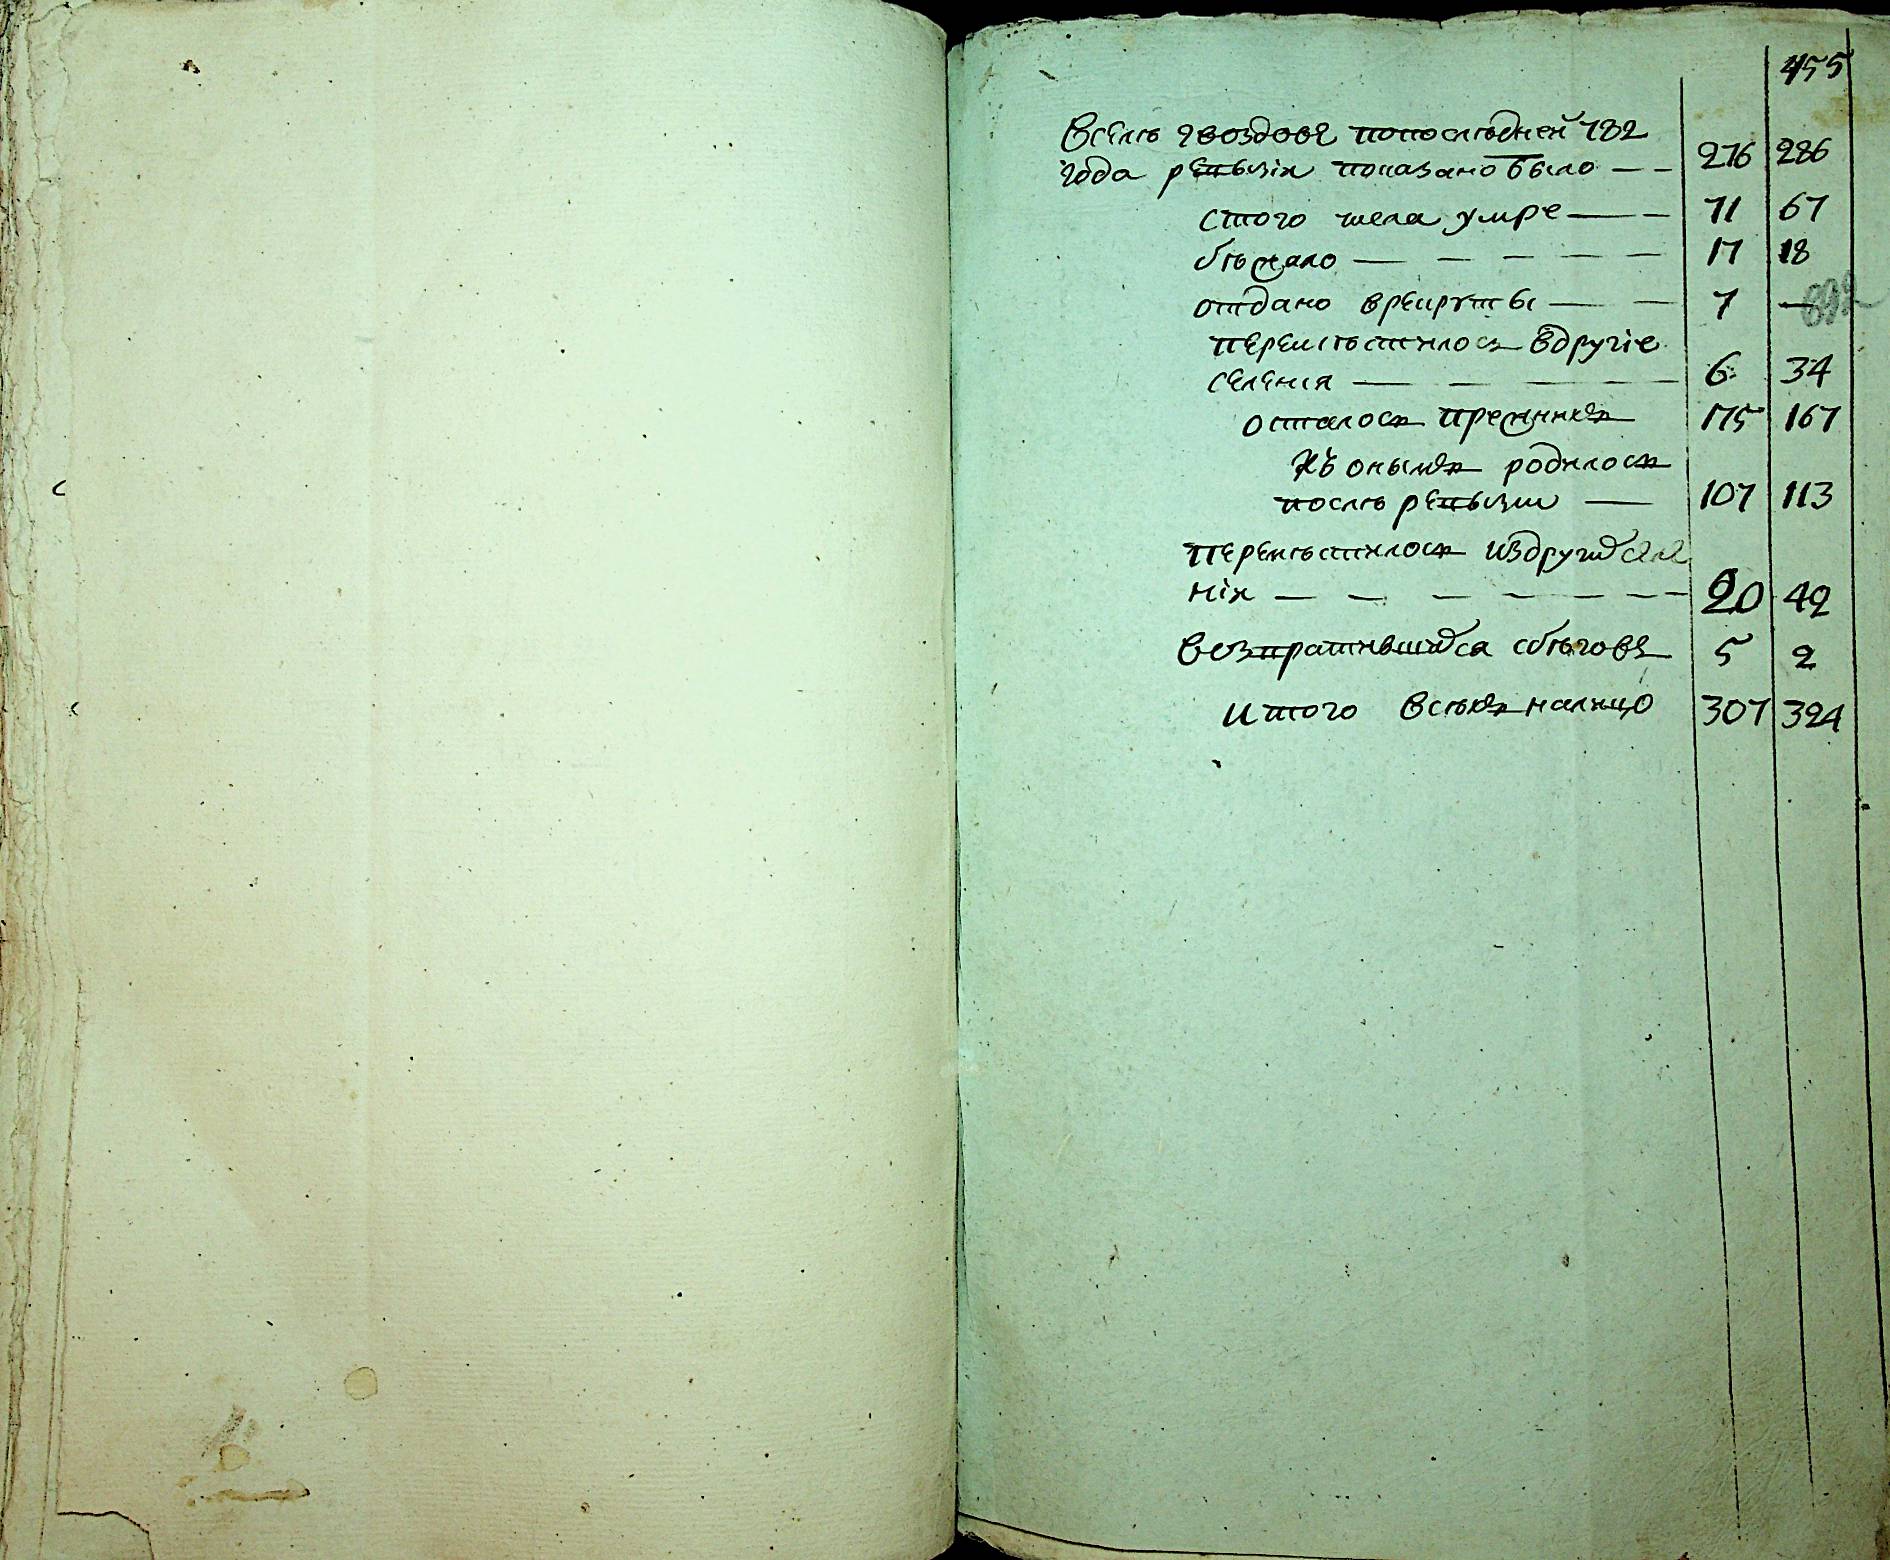 455
Вселѣ гвоздовѣ попослѣдней 782
года ревизіи показано было — — 276 286
стого числа умре — — 71 67
бѣжало — — — — — 17 18
отдано врекруты — — 7 —
перемѣстилось вдругіе
селенія — — — — 6 34
осталось прежнихъ 175 167
Къ онымъ родилось
послѣ ревизіи — 107 113
перемѣстилось издругихъ селе
нія — — — — — — — 20 42
возвратившихся сбѣговъ 5 2
итого всѣхъ налицо 307 324